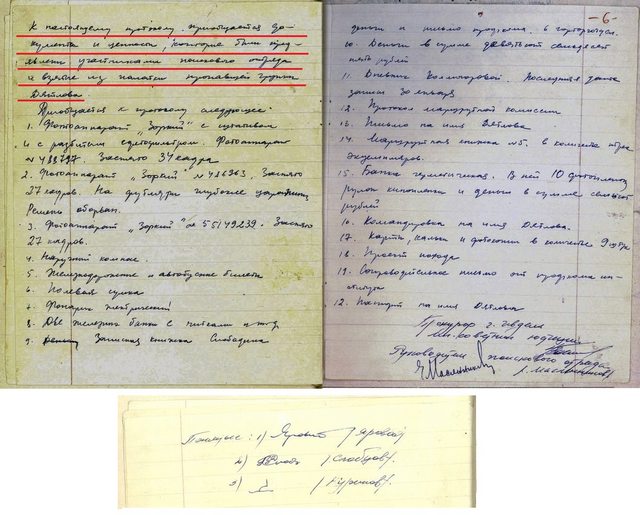 К настоящему протоколу приобщается до-
кументы и ценности, которые были пред-
явлены участниками поискового отряда
и взятые из палатки пропавшей группы
Дятлова.
Приобщается к протоколу следующее:
1. Фотоаппарат "Зоркий" с штативом
и с разбитым светофильтром. Фотоаппарат
№ 488797. Заснято 34 кадра
2. Фотоаппарат "Зоркий" № 486963. Заснято
27 кадров. На футляре глубокие царапины
Ремень оборван.
3. Фотоаппарат "Зоркий" № 55149239. Заснято
27 кадров.
4. Наручный компас.
5. Железнодорожные и автобусные билеты
6. Полевая сумка
7. Фонарик электрический
8. Две железные банки с нитками и т.д.
9. Записная книжка Слободина
-6-
деньги и письмо профкома в
10. Деньги в сумме девятьсот семьдесят
пять рублей
11. Дневник Колмогоровой. Последняя дата
записи 30 января
12. Протокол маршрутной комиссии
13. Письмо на имя Дятлова
14. Маршрутная книжка №5. в количестве трех
экземпляров.
15. Банка В ней 10 фотопленок
рулон кинопленки и деньги в сумме семьсот
рублей
16. Командировка на имя Дятлова.
17. Карты, кальки и фотокопии в количестве 9 штук
18. Проект похода
19. Сопроводительное письмо от профкома ин-
ститута
12. Паспорт на имя Дятлова
Прокурор г. Ивдель
мл. советник юстиции
Руководитель поискового отряда
/Масленников/
Понятые: 1) Яровой /Яровой/
2) /Слобцов/.
3) /Куриков/.